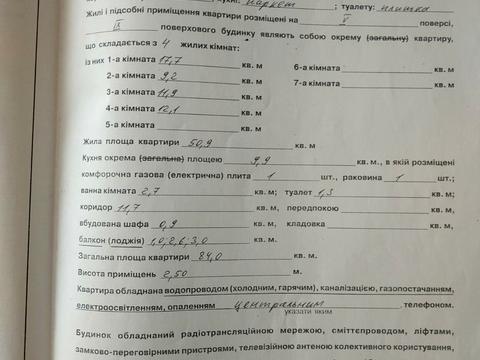 паркет ; туалету: плитка
Жилі і підсобні приміщення квартири розміщені на V поверсі,
IX поверхового будинку являють собою окрему (загальну) квартиру,
що складається з 4 жилих кімнат:
із них 1-а кімната 17,7 кв. м 6-а кімната кв. м
2-а кімната 9,2 кв. м 7-а кімната кв. м
3-а кімната 11,9 кв. м
4-а кімната 12,1 кв. м
5-а кімната кв. м
Жила площа квартири 50,9 кв. м
Кухня окрема (загальна) площею 9,9 кв. м., в якій розміщені
комфорочна газова (електрична) плита 1 шт., раковина 1 шт.;
ванна кімната 2,7 кв. м; туалет 1,3 кв. м;
коридор 11,7 кв. м, передпокою кв. м,
вбудована шафа 0,9 кв. м, кладовка кв. м,
балкон (лоджія) 1,0; 2,6; 3,0 кв. м.
Загальна площа квартири 84,0 кв. м.
Висота приміщень 2,50 м.
Квартира обладнана водопроводом (холодним, гарячим), каналізацією, газопостачанням,
електроосвітленням, опаленням центральним телефоном.
указати яким
Будинок обладнаний радіотрансляційною мережою, сміттєпроводом, ліфтами,
замково-переговірними пристроями, телевізійною антеною колективного користування,